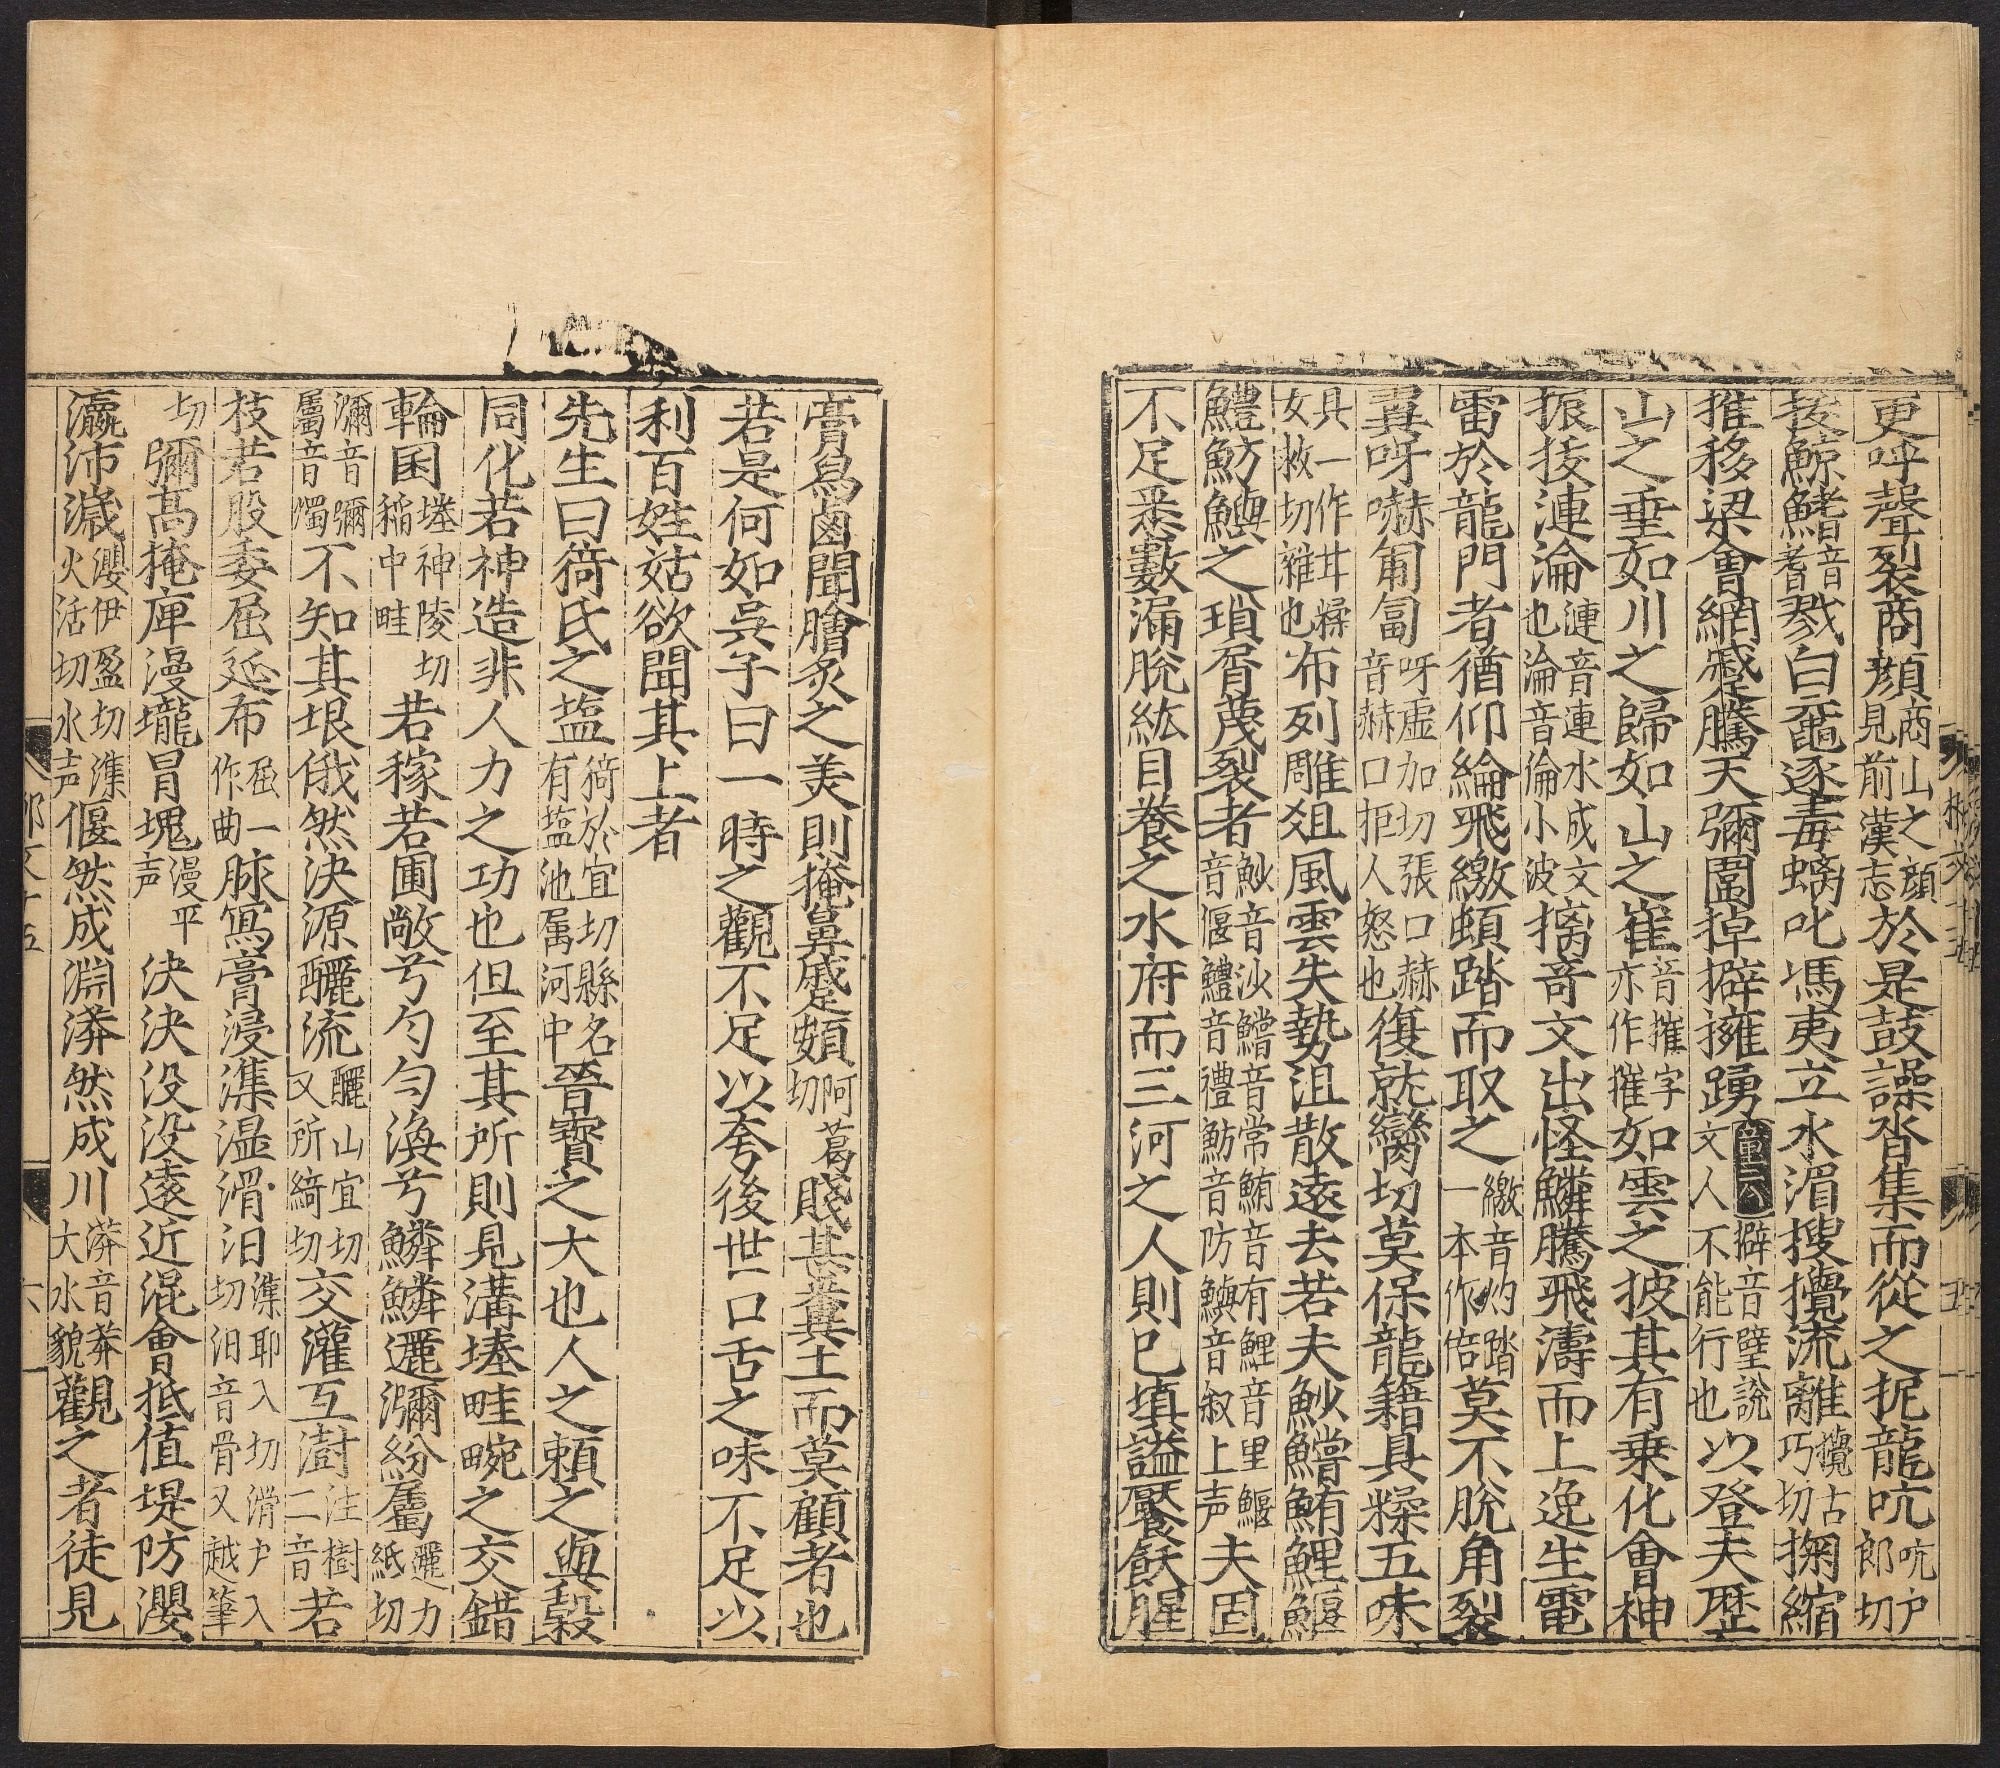 更呼聲裂商顔商山之顔見前漢志於是鼓譟沓集而從之扼龍吭吭户郎切
捘鯨鰭音耆戮白黿逐毒螭叱馮夷立水湄搜攪流離攪古巧切掬縮
推移梁會網蹙騰天彌圍掉擗擁踴童云擗音璧説文人不能行也以登夫歷
山之垂如川之歸如山之崔音摧字亦作摧如雲之披其有乗化會神
振拔漣淪漣音連水成文也淪音倫小波摛竒文出怪鱗騰飛濤而上逸生電
雷於龍門者猶仰綸飛繳頓踏而取之繳音灼踏一本作倍莫不脫角裂
翼呀嚇匍匐呀虚加切張口赫音赫口拒人怒也復就臠切莫保龍籍具糅五味
具一作甘糅女救切雜也布列雕俎風雲失勢沮散遠去若夫魦鱨鮪鯉鰋
鱧魴鱮之瑣屑蔑裂者魦音沙鱨音常鮪音有鯉音里鰋音偃鱧音禮魴音防鱮音叙上声夫固
不足悉數漏脫紘目養之水府而三河之人則已填謚饜飫腥
膏舄鹵聞膾炙之美則掩鼻蹙頞阿葛切賤甚糞土而莫顧者也
若是何如吳子曰一時之觀不足以夸後世一口舌之味不足以
利百姓姑欲聞其上者
先生曰猗氏之盬猗於宜切縣名有盬池属河中晉寶之大也人之頼之與穀
同化若神造非人力之功也但至其所則見溝塍畦畹之交錯
輪囷塍神陵切稲中畦若稼若圃敞兮勻勻渙兮鱗鱗邐瀰紛屬邐力紙切
瀰音彌屬音燭不知其垠俄然決源釃流釃山宜切又所綺切交灌互澍注樹二音若
枝若股委屈延布屈一作曲脉寫膏浸潗濕滑汩潗耶入切滑户入切汩音骨又越筆
切彌髙掩庳漫壠冒塊漫平声決決没没逺近混會抵值堤防瀴
瀛沛濊瀴伊盈切潗火活切水声偃然成淵漭然成川漭音莽大水貌觀之者徒見